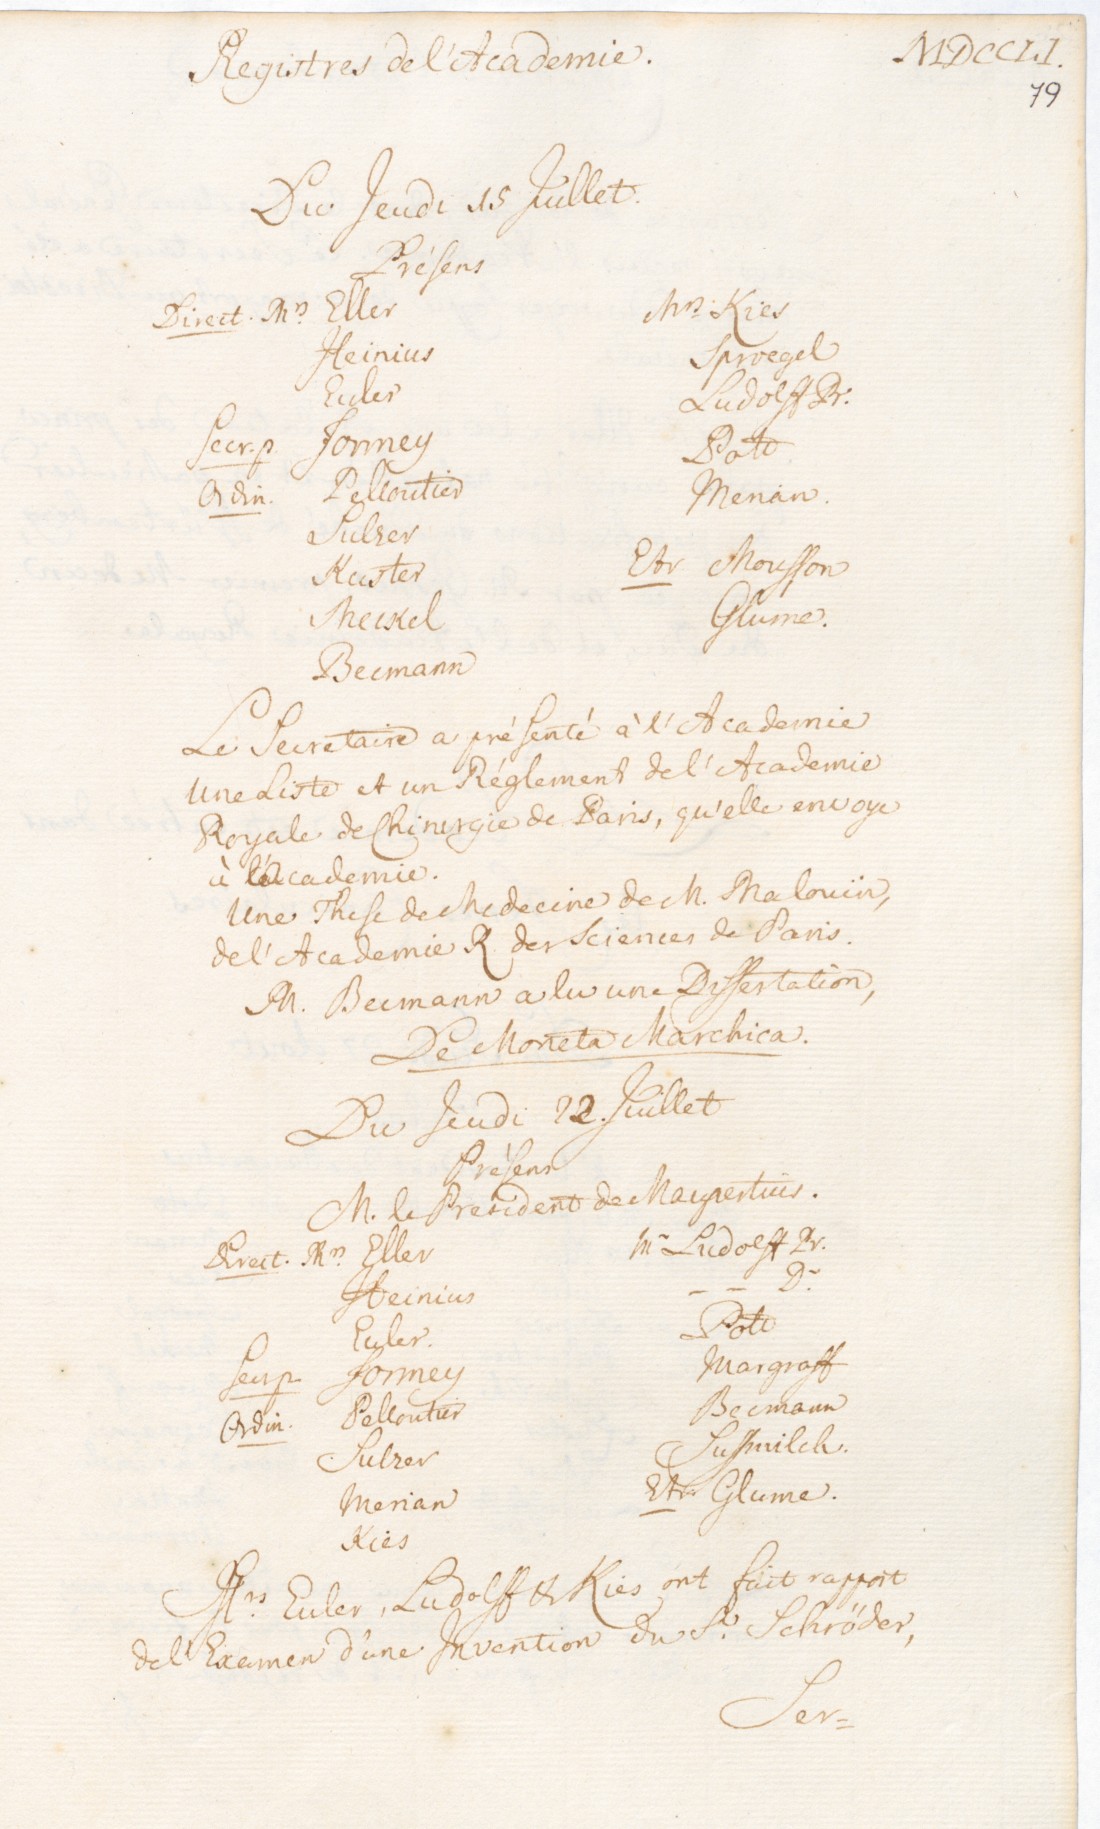 Registres de l'Academie. MDCCLI.
79
Du Jeudi 15 Juillet.
Présens
Direct. Mrs Eller Mrs Kies
Heinius Sproegel
Euler Ludolff Pr.
Secr. p. Formey Pott
Ordin. Pelloutier Merian.
Sulzer
Kuster Etr Mousson
Meckel Glume.
Becmann
Le Secretaire a présenté à l'Academie
une Liste et un Réglement de l'Academie
Royale de Chirurgie de Paris, qu'elle envoye
à l'Academie.
Une These de Medecine de M. Malouin,
de l'Academie R. des Sciences de Paris.
M. Becmann a lu une Dissertation,
De Moneta Marchica.
Du Jeudi 22. Juillet
Présens
M. le President de Maupertuis.
Direct. Mrs Eller Mr Ludolff Pr.
Heinius – – Dr
Euler. Pott
Secr p Formey Margraff
Ordin. Pelloutier Becmann
Sulzer Sussmilch.
Merian Etr Glume.
Kies
Mrs Euler, Ludolff & Kies ont fait rapport
de l'Examen d'une Invention du Sr. Schröder,
Ser=